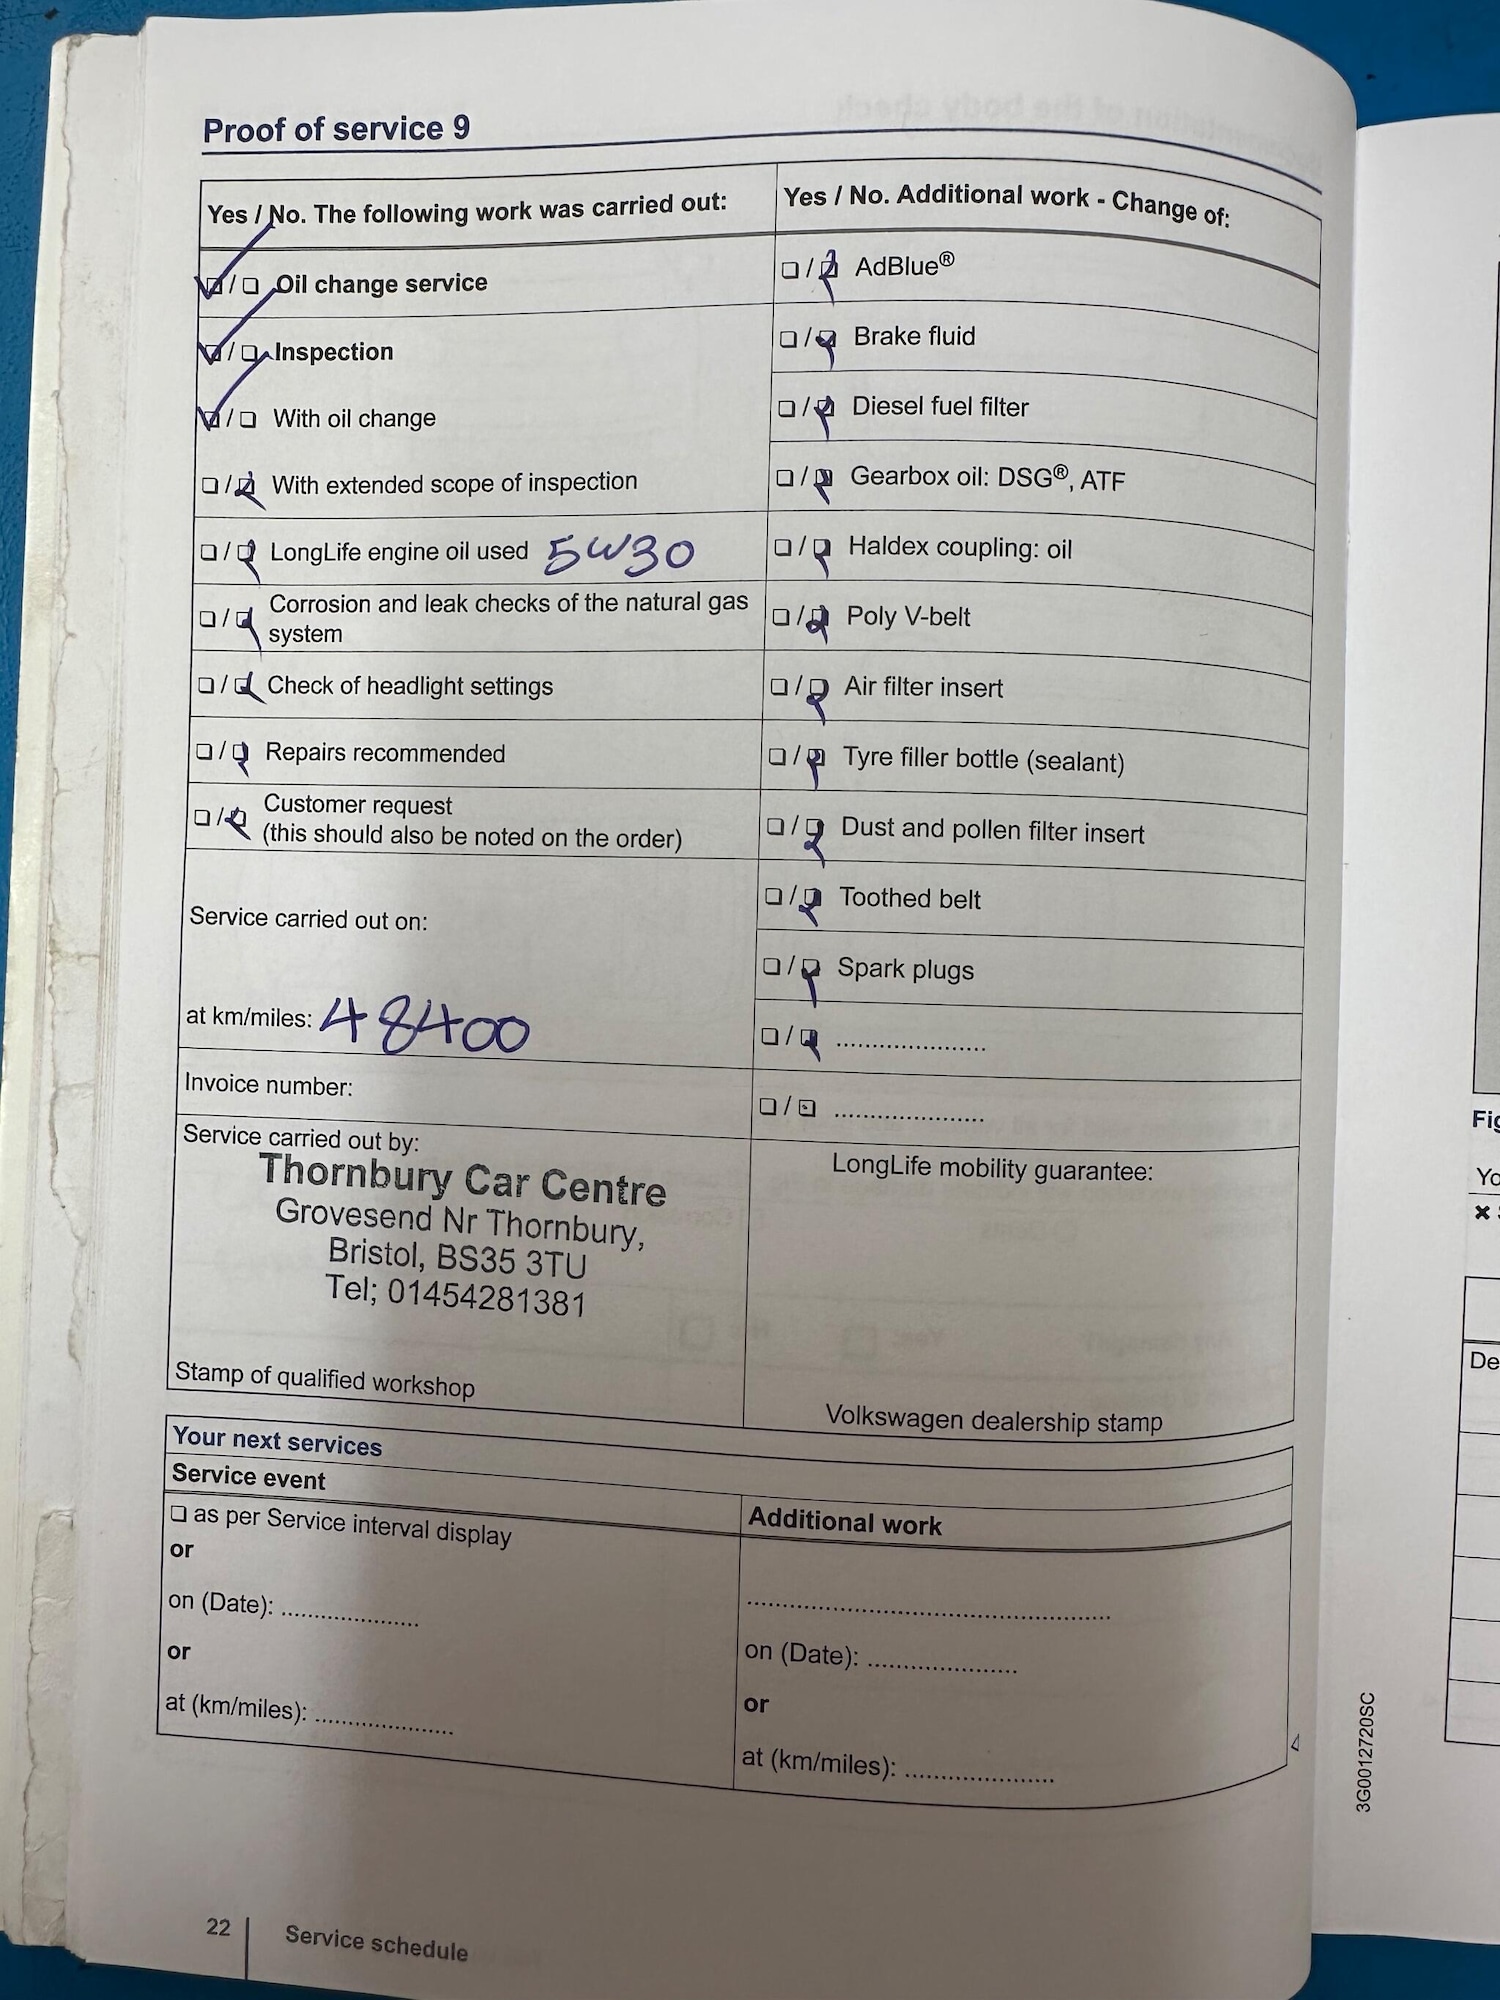 Proof of service 9
Yes / No. The following work was carried out:
☑ / ☐ Oil change service
☑ / ☐ Inspection
☑ / ☐ With oil change
☐ / ☑ With extended scope of inspection
☐ / ☑ LongLife engine oil used 5W30
☐ / ☑ Corrosion and leak checks of the natural gas
system
☐ / ☑ Check of headlight settings
☐ / ☑ Repairs recommended
☐ / ☑ Customer request
(this should also be noted on the order)
Service carried out on:
at km/miles: 48400
Invoice number:
Service carried out by:
Thornbury Car Centre
Grovesend Nr Thornbury,
Bristol, BS35 3TU
Tel; 01454281381
Stamp of qualified workshop
Yes / No. Additional work - Change of:
☐ / ☑ AdBlue®
☐ / ☑ Brake fluid
☐ / ☑ Diesel fuel filter
☐ / ☑ Gearbox oil: DSG®, ATF
☐ / ☑ Haldex coupling: oil
☐ / ☑ Poly V-belt
☐ / ☑ Air filter insert
☐ / ☑ Tyre filler bottle (sealant)
☐ / ☑ Dust and pollen filter insert
☐ / ☑ Toothed belt
☐ / ☑ Spark plugs
☐ / ☑ ......................
☐ / ☐ ......................
LongLife mobility guarantee:
Volkswagen dealership stamp
Your next services
Service event
☐ as per Service interval display
or
on (Date): .....................
or
at (km/miles): .....................
Additional work
.......................................................
on (Date): ......................
or
at (km/miles): ......................
3G0012720SC
22 Service schedule
Fig
Yo
De